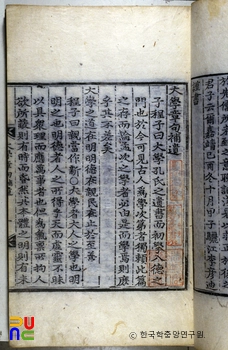 大學章句補遺
子程子曰大學孔氏之遺書而初學入德之
門也於今可見古人爲學次第者獨賴此篇
之存而論孟次之學者必由是而學焉則庶
乎其不差矣
大學之道在明明德在親民在止於至善
程子曰親當作新〇大學者大人之學也明
明之也明德者人之所得乎天而虛靈不昧
以具衆理而應萬事者也但爲氣稟所拘人
欲所蔽則有時而昏然其本體之明則有未
한국학중앙연구원